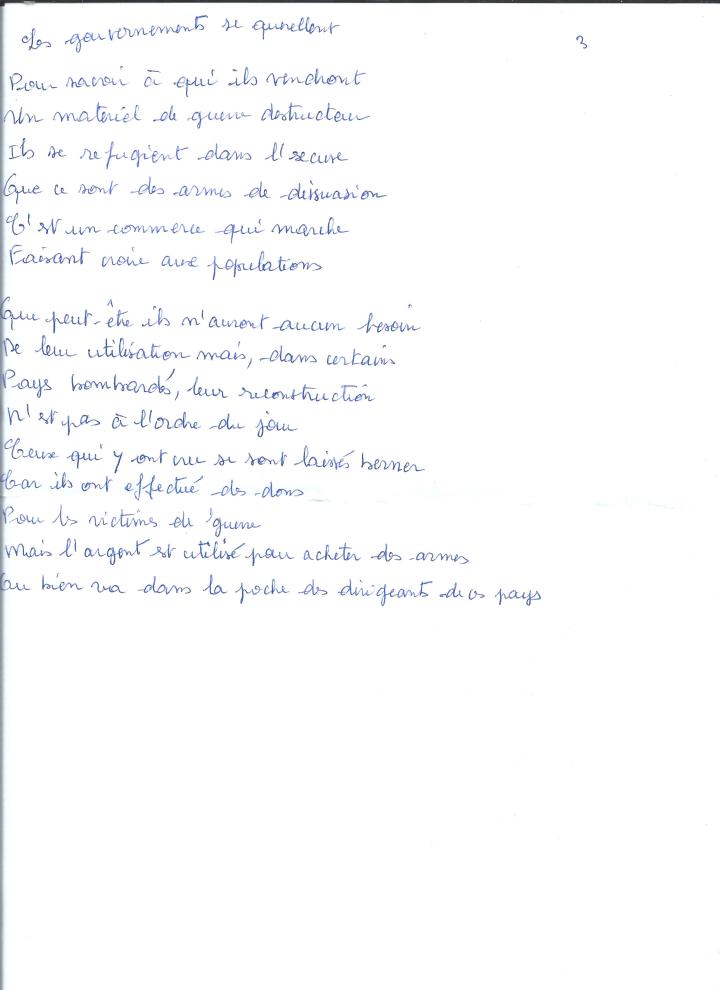 Les gouvernements se querellent
3
Pour savoir à qui ils vendront
Un matériel de guerre destructeur
Ils se refugient dans l'secure
Que ce sont des armes de dissuasion
C'est un commerce qui marche
Faisant croire aux populations
Que peut-être ils n'auront aucun besoin
De leur utilisation mais, dans certains
Pays bombardés, leur reconstruction
N'est pas à l'ordre du jour
Ceux qui y ont cru se sont laissés berner
Car ils ont effectué des dons
Pour les victimes de guerre
Mais l'argent est utilisé pour acheter des armes
Ou bien va dans la poche des dirigeants de ces pays